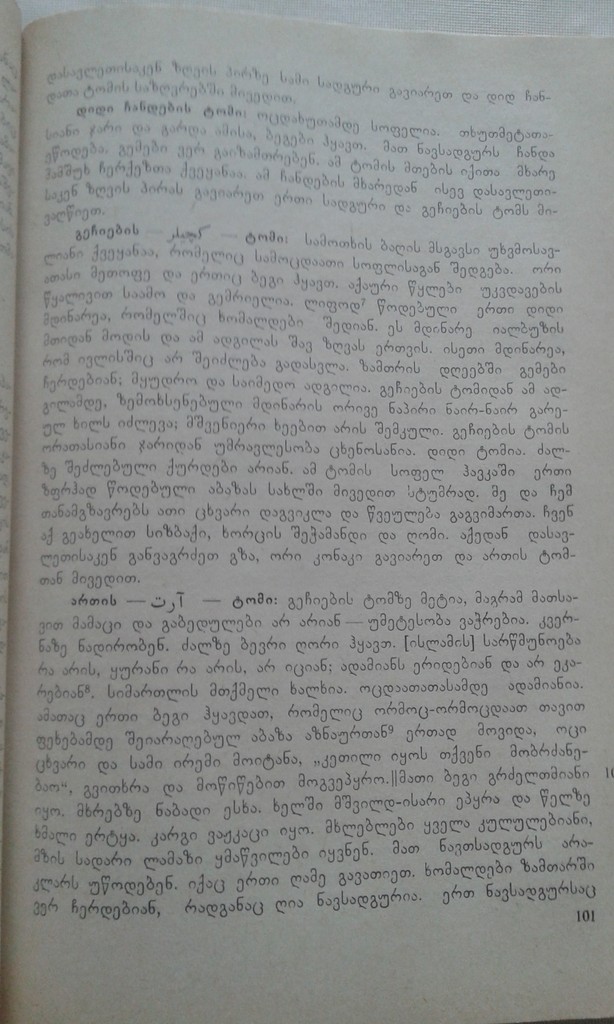 დასავლეთისაკენ ზღვის პირზე სამი სადგური გავიარეთ და დიდ ჩან-
დათა ტომის საზღვრებში მივედით.
დიდი ჩანდების ტომი: ოცდახუთამდე სოფელია. თხუთმეტათა-
სიანი ჯარი და გარდა ამისა, ბეგები ჰყავთ. მათ ნავსადგურს ჩანდა
ეწოდება. გემები ვერ გაიზამთრებენ. ამ ტომის მთების იქითა მხარე
ჩერქეზთა ქვეყანაა. ამ ჩანდების მხარედან ისევ დასავლეთი-
საკენ ზღვის პირას გავიარეთ ერთი სადგური და გეჩიების ტომს მი-
ვაღწიეთ.
გეჩიების — كچيلر — ტომი: სამოთხის ბაღის მსგავსი უხვმოსავ-
ლიანი ქვეყანაა, რომელიც სამოცდაათი სოფლისაგან შედგება. ორი
ათასი მეთოფე და ერთიც ბეგი ჰყავთ. აქაური წყლები უკვდავების
წყალივით საამო და გემრიელია. ლიფოდ⁷ წოდებული ერთი დიდი
მდინარეა, რომელშიც ხომალდები შედიან. ეს მდინარე იალბუზის
მთიდან მოდის და ამ ადგილას შავ ზღვას ერთვის. ისეთი მდინარეა,
რომ ივლისშიც არ შეიძლება გადასვლა. ზამთრის დღეებში გემები
ჩერდებიან; მყუდრო და საიმედო ადგილია. გეჩიების ტომიდან ამ ად-
გილამდე, ზემოხსენებული მდინარის ორივე ნაპირი ნაირ-ნაირ გარე-
ულ ხილს იძლევა; მშვენიერი ხეებით არის შემკული. გეჩიების ტომის
ორათასიანი ჯარიდან უმრავლესობა ცხენოსანია. დიდი ტომია. ძალ-
ზე შეძლებული ქურდები არიან. ამ ტომის სოფელ ჰავკაში ერთი
ზფრჰად წოდებული აბაზას სახლში მივედით სტუმრად. მე და ჩემ
თანამგზავრებს ათი ცხვარი დაგვიკლა და წვეულება გაგვიმართა. ჩვენ
აქ გეახელით სიზბაქი, ხორცის შეჰამანდი და ღომი. აქედან დასავ-
ლეთისაკენ განვაგრძეთ გზა, ორი კონაკი გავიარეთ და ართის ტომ-
თან მივედით.
ართის — آرت — ტომი: გეჩიების ტომზე მეტია, მაგრამ მათსა-
ვით მამაცი და გაბედულები არ არიან — უმეტესობა ვაჭრებია. კვერ-
ნაზე ნადირობენ. ძალზე ბევრი ღორი ჰყავთ. [ისლამის] სარწმუნოება
რა არის, ყურანი რა არის, არ იციან; ადამიანს ერიდებიან და არ ეკა-
რებიან⁸. სიმართლის მთქმელი ხალხია. ოცდაათათასამდე ადამიანია.
ამათაც ერთი ბეგი ჰყავდათ, რომელიც ორმოც-ორმოცდაათ თავით
ფეხებამდე შეიარაღებულ აბაზა აზნაურთან⁹ ერთად მოვიდა, ოცი
ცხვარი და სამი ირემი მოიტანა, „კეთილი იყოს თქვენი მობრძანე-
ბაო“, გვითხრა და მოწიწებით მოგვეპყრო.||მათი ბეგი გრძელთმიანი
იყო. მხრებზე ნაბადი ესხა. ხელში მშვილდ-ისარი ეპყრა და წელზე
ხმალი ერტყა. კარგი ვაჟკაცი იყო. მხლებლები ყველა კულულებიანი,
მზის სადარი ლამაზი ყმაწვილები იყვნენ. მათ ნავთსადგურს არა-
კლარს უწოდებენ. იქაც ერთი ღამე გავათიეთ. ხომალდები ზამთარში
ვერ ჩერდებიან, რადგანაც ღია ნავსადგურია. ერთ ნავსადგურსაც
101